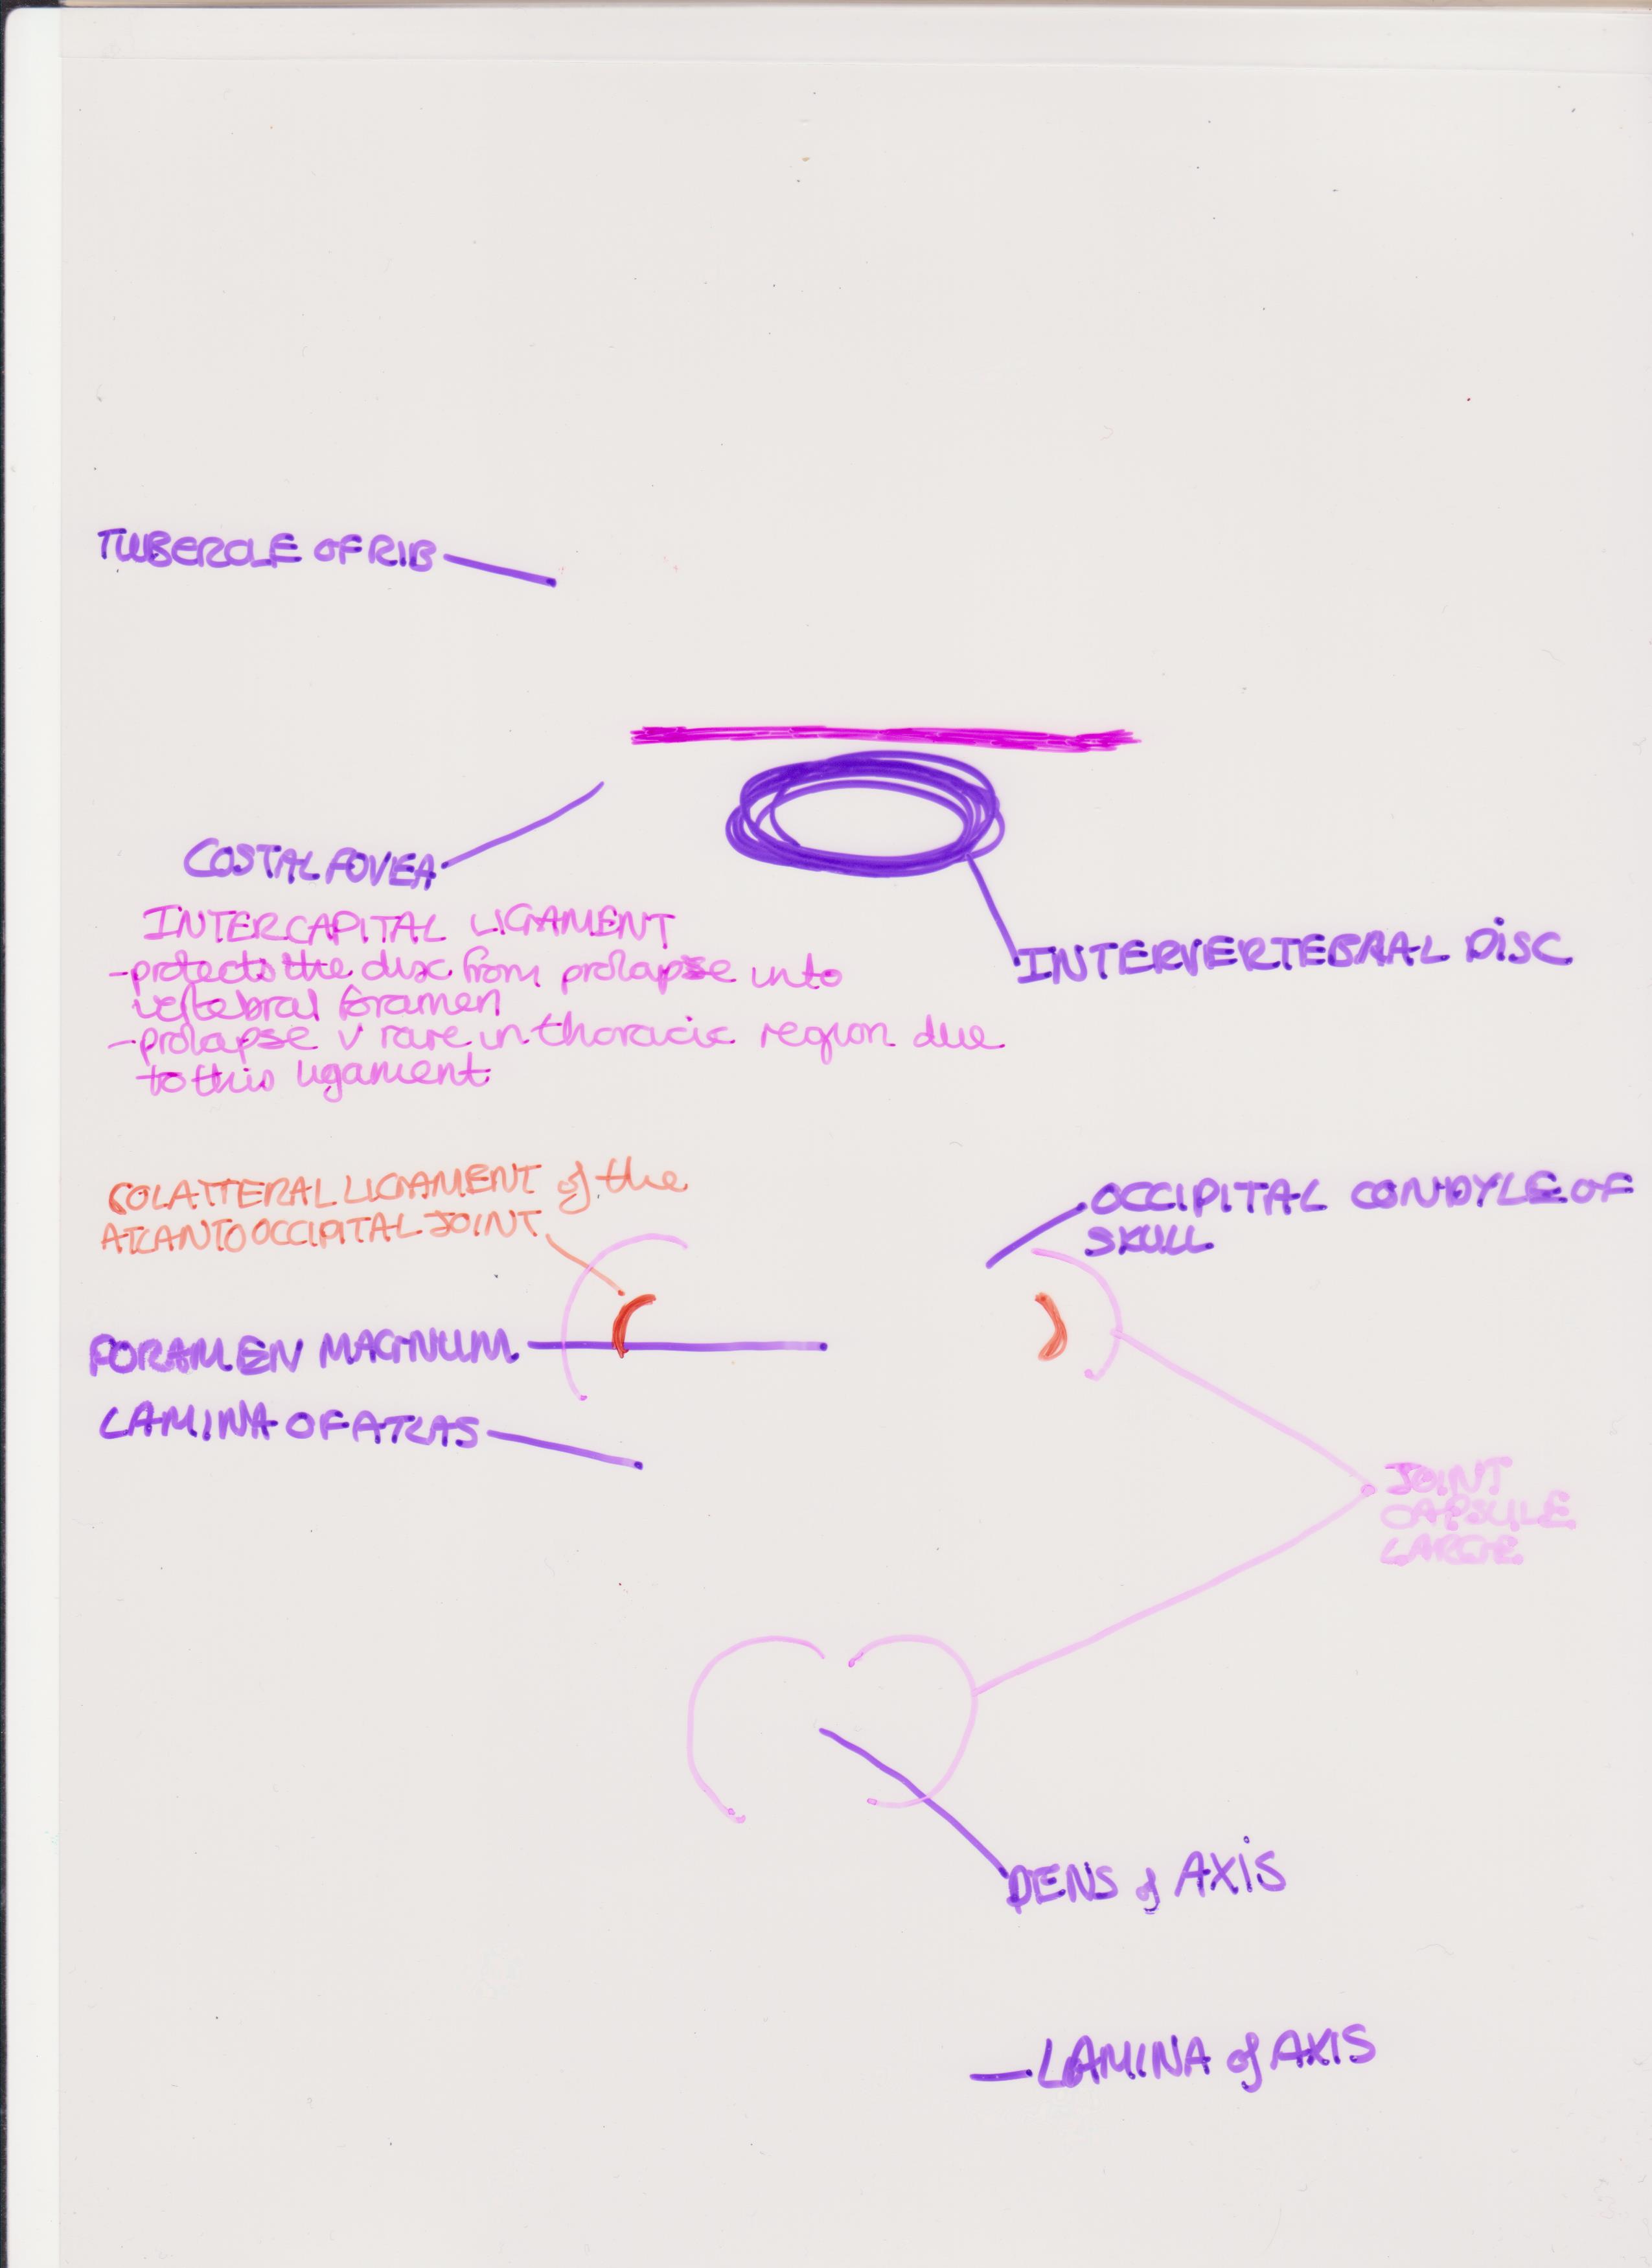 TUBERCLE OF RIB
COSTAL FOVEA
INTERVERTEBRAL DISC
INTERCAPITAL LIGAMENT
-protects the disc from prolapse into
vertebral foramen
-prolapse v rare in thoracic region due
to this ligament
COLATTERAL LIGAMENT of the
ATLANTOOCCIPITAL JOINT
OCCIPITAL CONDYLE OF
SKULL
FORAMEN MAGNUM
LAMINA OF ATLAS
JOINT
CAPSULE
LARGE
DENS of AXIS
LAMINA of AXIS